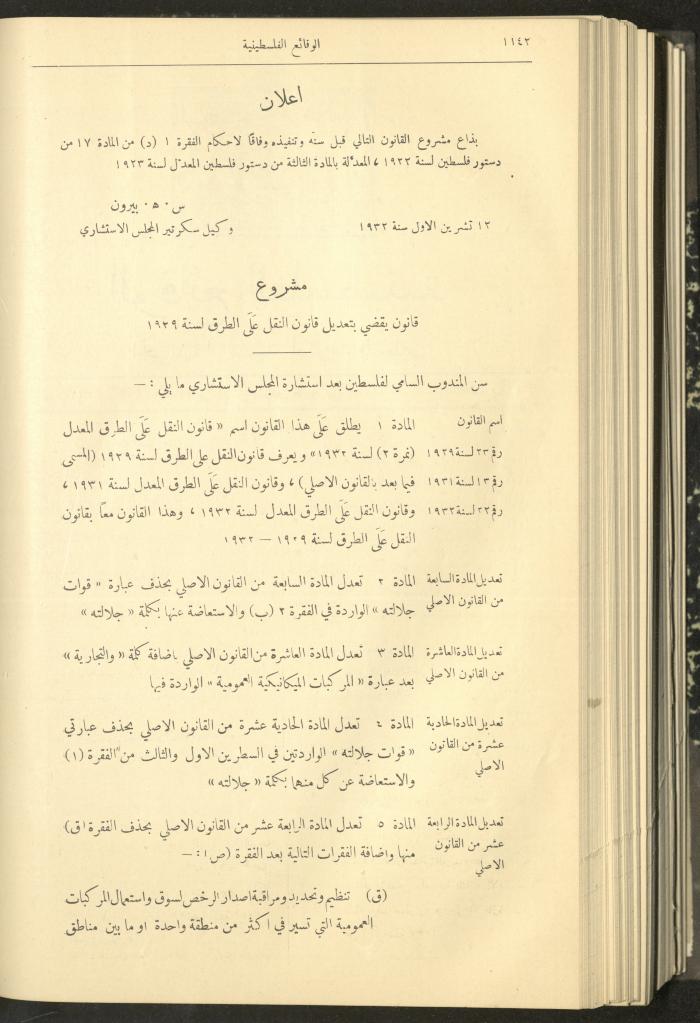 ١١٤٢
الوقائع الفلسطينية
اعلان
يذاع مشروع القانون التالي قبل سنّه وتنفيذه وفاقًا لاحكام الفقرة ١ (د) من المادة ١٧ من
دستور فلسطين لسنة ١٩٢٢ ، المعدلة بالمادة الثالثة من دستور فلسطين المعدل لسنة ١٩٢٣
س٠ ه٠ بيرون
١٢ تشرين الاول سنة ١٩٣٢
وكيل سكرتير المجلس الاستشاري
مشروع
قانون يقضي بتعديل قانون النقل عَلَى الطرق لسنة ١٩٢٩
سن المندوب السامي لفلسطين بعد استشارة المجلس الاستشاري ما يلي : —
اسم القانون
رقم ٢٣ لسنة ١٩٢٩
رقم ١٣ لسنة ١٩٣١
رقم ٢٢ لسنة ١٩٣٢
المادة ١ يطلق عَلَى هذا القانون اسم « قانون النقل عَلَى الطرق المعدل
(نمرة ٢) لسنة ١٩٣٢» ويعرف قانون النقل على الطرق لسنة ١٩٢٩ (المسمى
فيما بعد بالقانون الاصلي) ، وقانون النقل عَلَى الطرق المعدل لسنة ١٩٣١ ،
وقانون النقل عَلَى الطرق المعدل لسنة ١٩٣٢ ، وهذا القانون معًا بقانون
النقل عَلَى الطرق لسنة ١٩٢٩ — ١٩٣٢
تعديل المادة السابعة
من القانون الاصلي
المادة ٢ تعدل المادة السابعة من القانون الاصلي بحذف عبارة « قوات
جلالته » الواردة في الفقرة ٢ (ب) والاستعاضة عنها بكلمة « جلالته »
تعديل المادة العاشرة
من القانون الاصلي
المادة ٣ تعدل المادة العاشرة من القانون الاصلي باضافة كلمة « والتجارية »
بعد عبارة « المركبات الميكانيكية العمومية » الواردة فيها
تعديل المادة الحادية
عشرة من القانون
الاصلي
المادة ٤ تعدل المادة الحادية عشرة من القانون الاصلي بحذف عبارتي
« قوات جلالته » الواردتين في السطرين الاول والثالث من الفقرة (١)
والاستعاضة عن كل منهما بكلمة « جلالته »
تعديل المادة الرابعة
عشر من القانون
الاصلي
المادة ٥ تعدل المادة الرابعة عشر من القانون الاصلي بحذف الفقرة (ق)
منها واضافة الفقرات التالية بعد الفقرة (ص) : —
(ق) تنظيم وتحديد ومراقبة اصدار الرخص لسوق واستعمال المركبات
العمومية التي تسير في اكثر من منطقة واحدة او ما بين مناطق